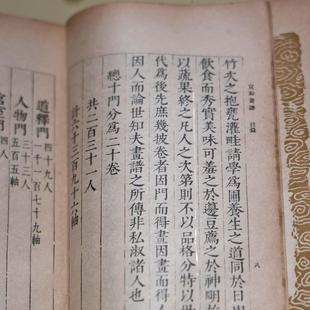 宣和畫譜 目錄 八
竹次之抱甕灌畦請學為圃養生之道同於日用
飲食而秀實美味可羞之於籩豆薦之於神明故
以蔬果終之凡人之次第則不以品格分特以世
代為後先庶幾披卷者因門而得畫因畫而得人
因人而論世知夫畫譜之所傳非私淑諸人也
總十門分為二十卷
共二百三十一人
計六千三百九十六軸
道釋門 四十九人 千一百七十九軸
人物門 三十三人 五百五軸
宮室門 四人